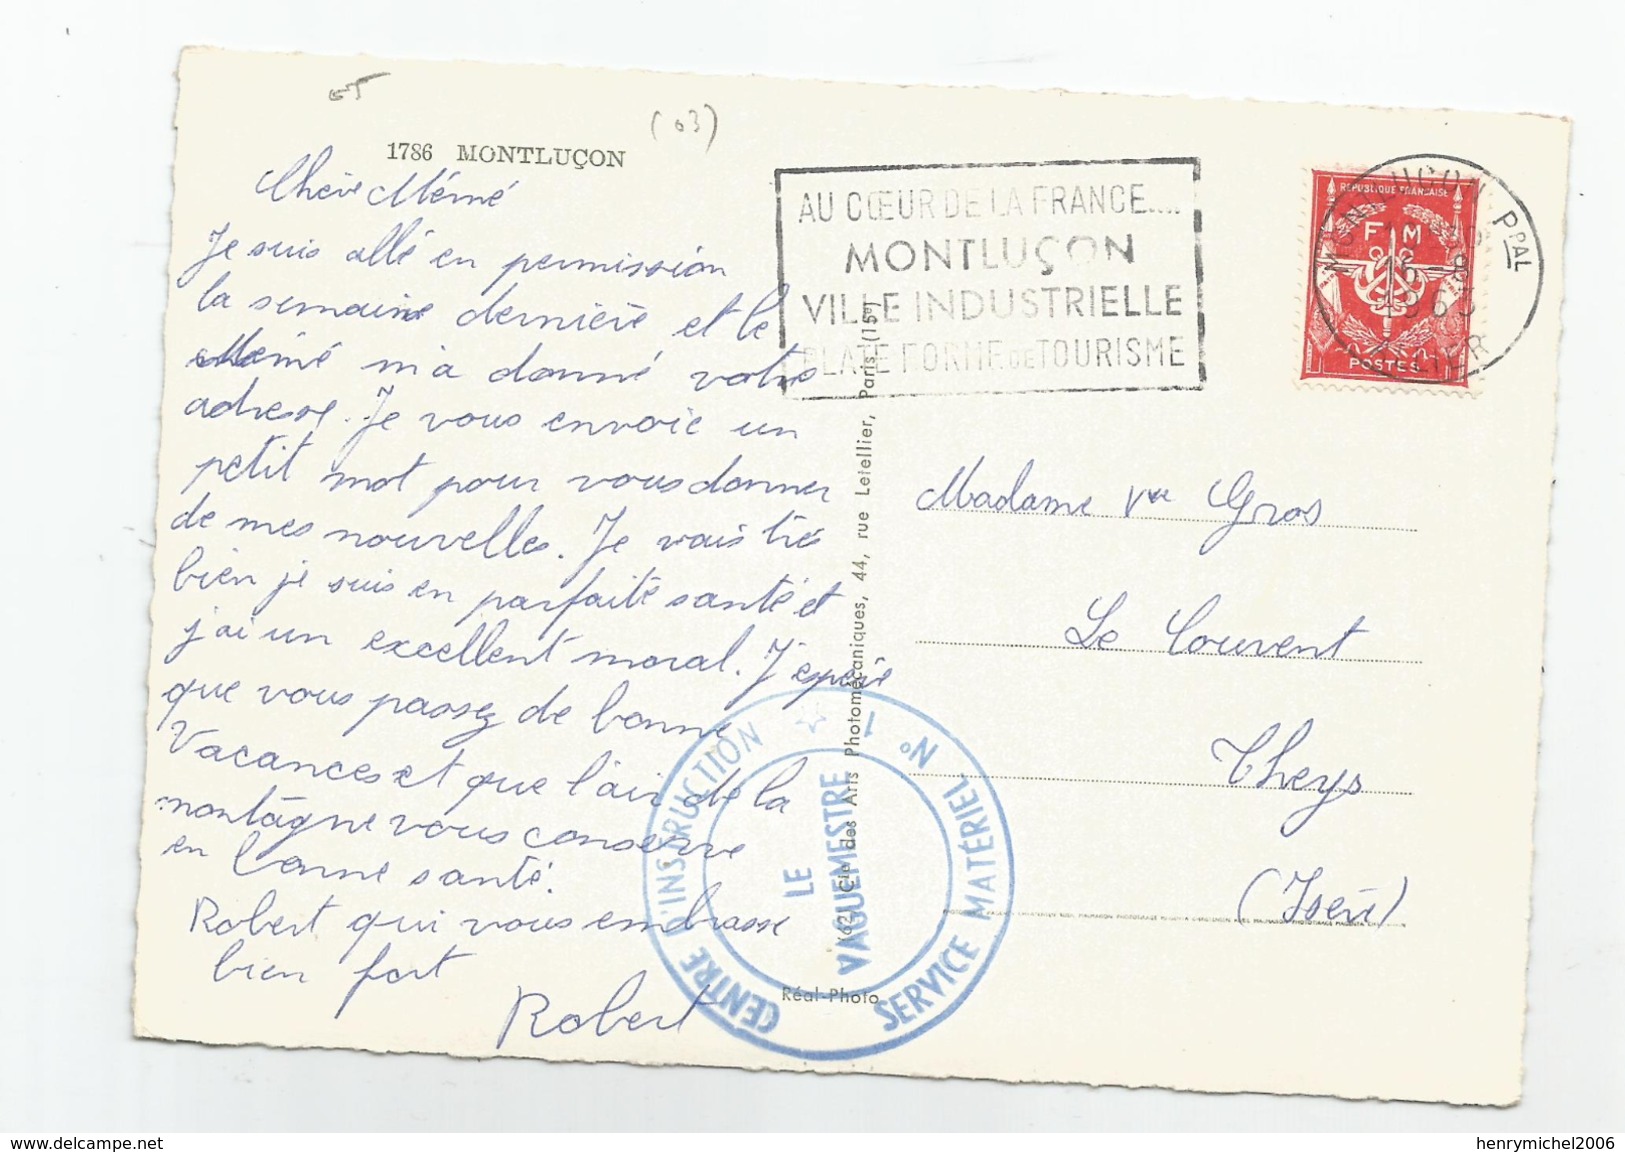 GT
(03)
1786 MONTLUÇON
Chère Mémé
Je suis allé en permission
la semaine dernière et le
Mémé m'a donné votre
adresse. Je vous envoie un
petit mot pour vous donner
de mes nouvelles. Je vais très
bien je suis en parfaite santé et
j'ai un excellent moral. J'espère
que vous passez de bonne
Vacances et que l'air de la
montagne vous conserve
en bonne santé.
Robert qui vous embrasse
bien fort
Robert
AU CŒUR DE LA FRANCE....
MONTLUÇON
VILLE INDUSTRIELLE
PLATE FORME DE TOURISME
REPUBLIQUE FRANÇAISE
F M
POSTES
MONTLUÇON PPAL
16 - 8
1963
ALLIER
Madame Vve Gros
Le Couvent
Theys
(Isère)
Cie des Arts Photomécaniques, 44, rue Letellier, Paris (15e)
Réal-Photo
CENTRE D'INSTRUCTION N° 1
SERVICE MATÉRIEL
LE
VAGUEMESTRE
www.delcampe.net
henrymichel2006